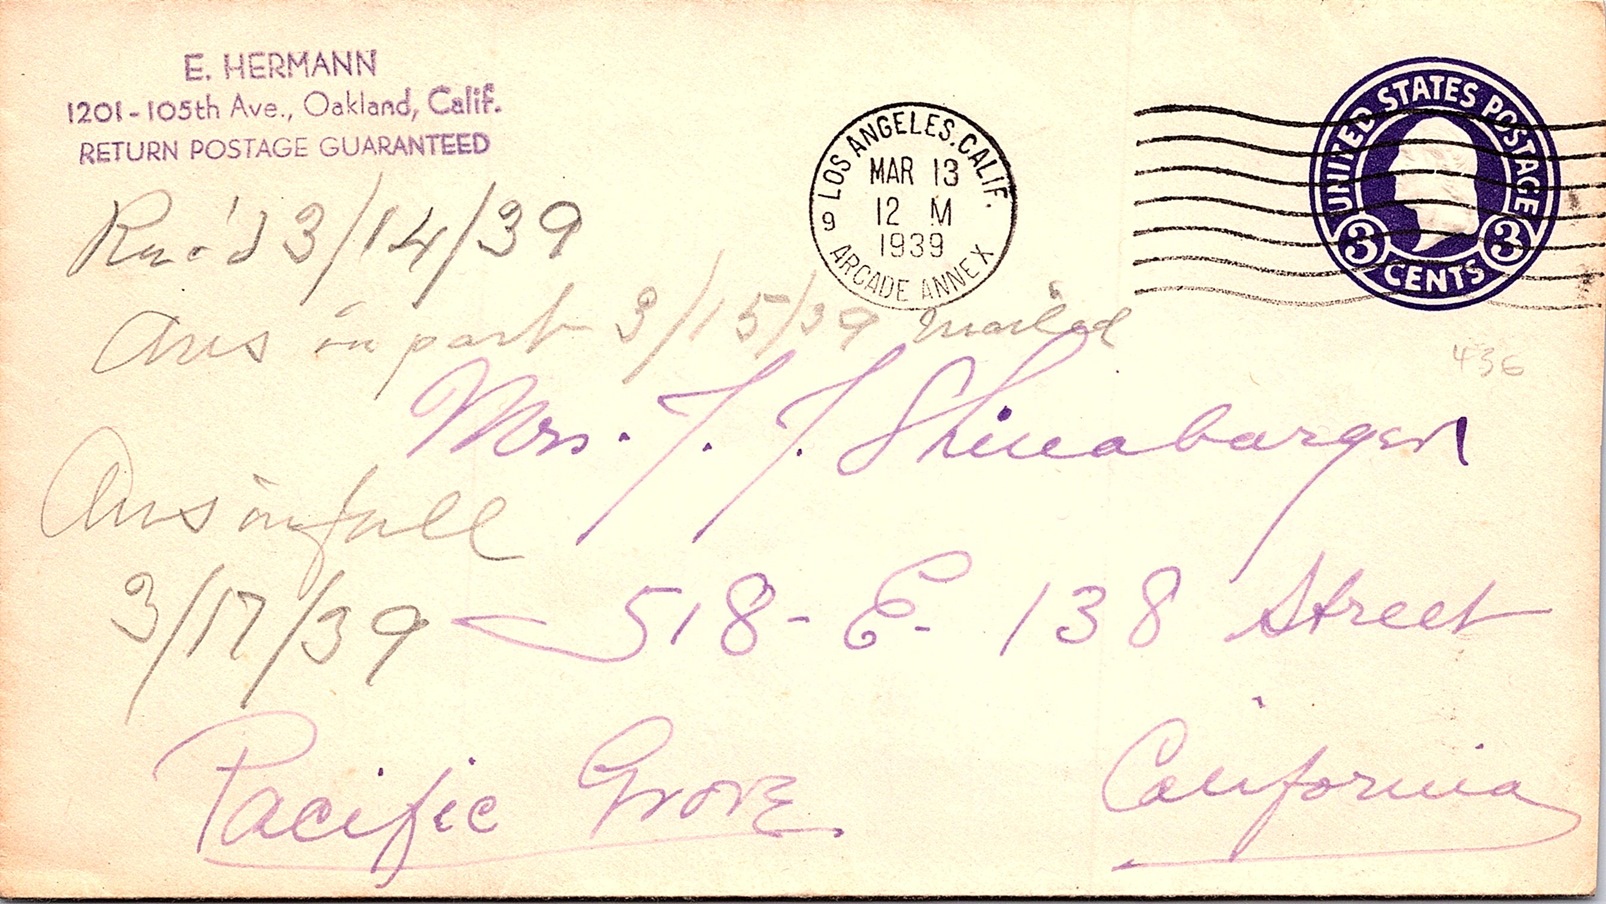 E. HERMANN
1201-105th Ave., Oakland, Calif.
RETURN POSTAGE GUARANTEED
LOS ANGELES, CALIF.
MAR 13
12 M
1939
9
ARCADE ANNEX
UNITED STATES POSTAGE
3 3
CENTS
Rec'd 3/14/39
Ans in part 3/15/39 mailed
436
Mrs. J. J. Shinabarger
Ans in full
3/17/39
518-E-138 Street
Pacific Grove
California